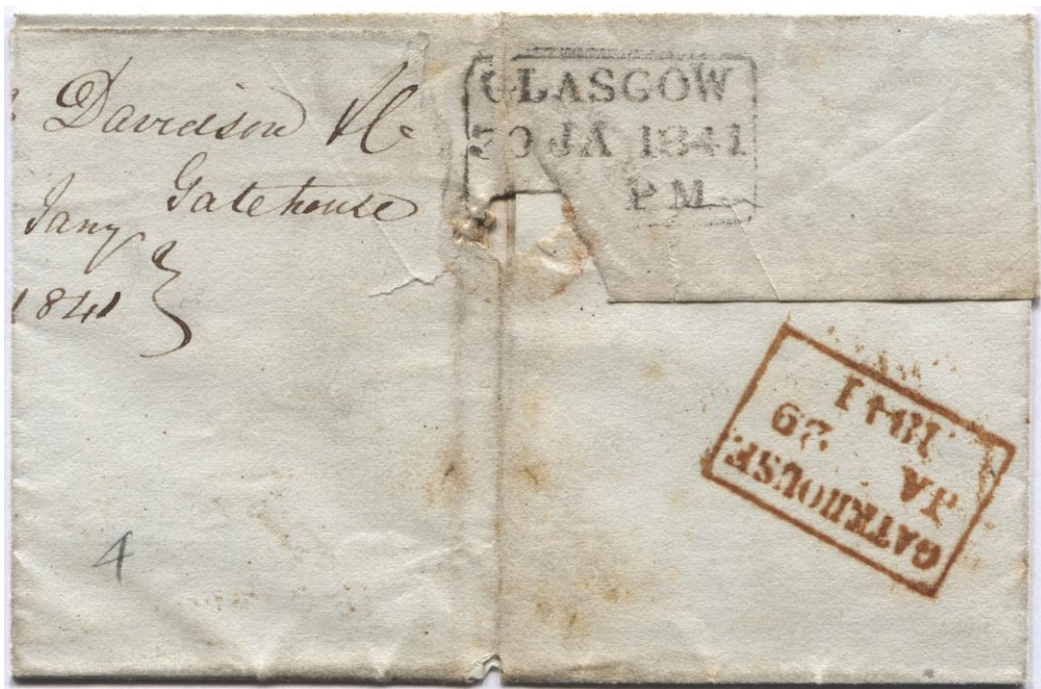 Davidson &Co
Gatehouse
Jany
1841
GLASGOW
30 JA 1841
PM
GATEHOUSE
JA 29
1841
4